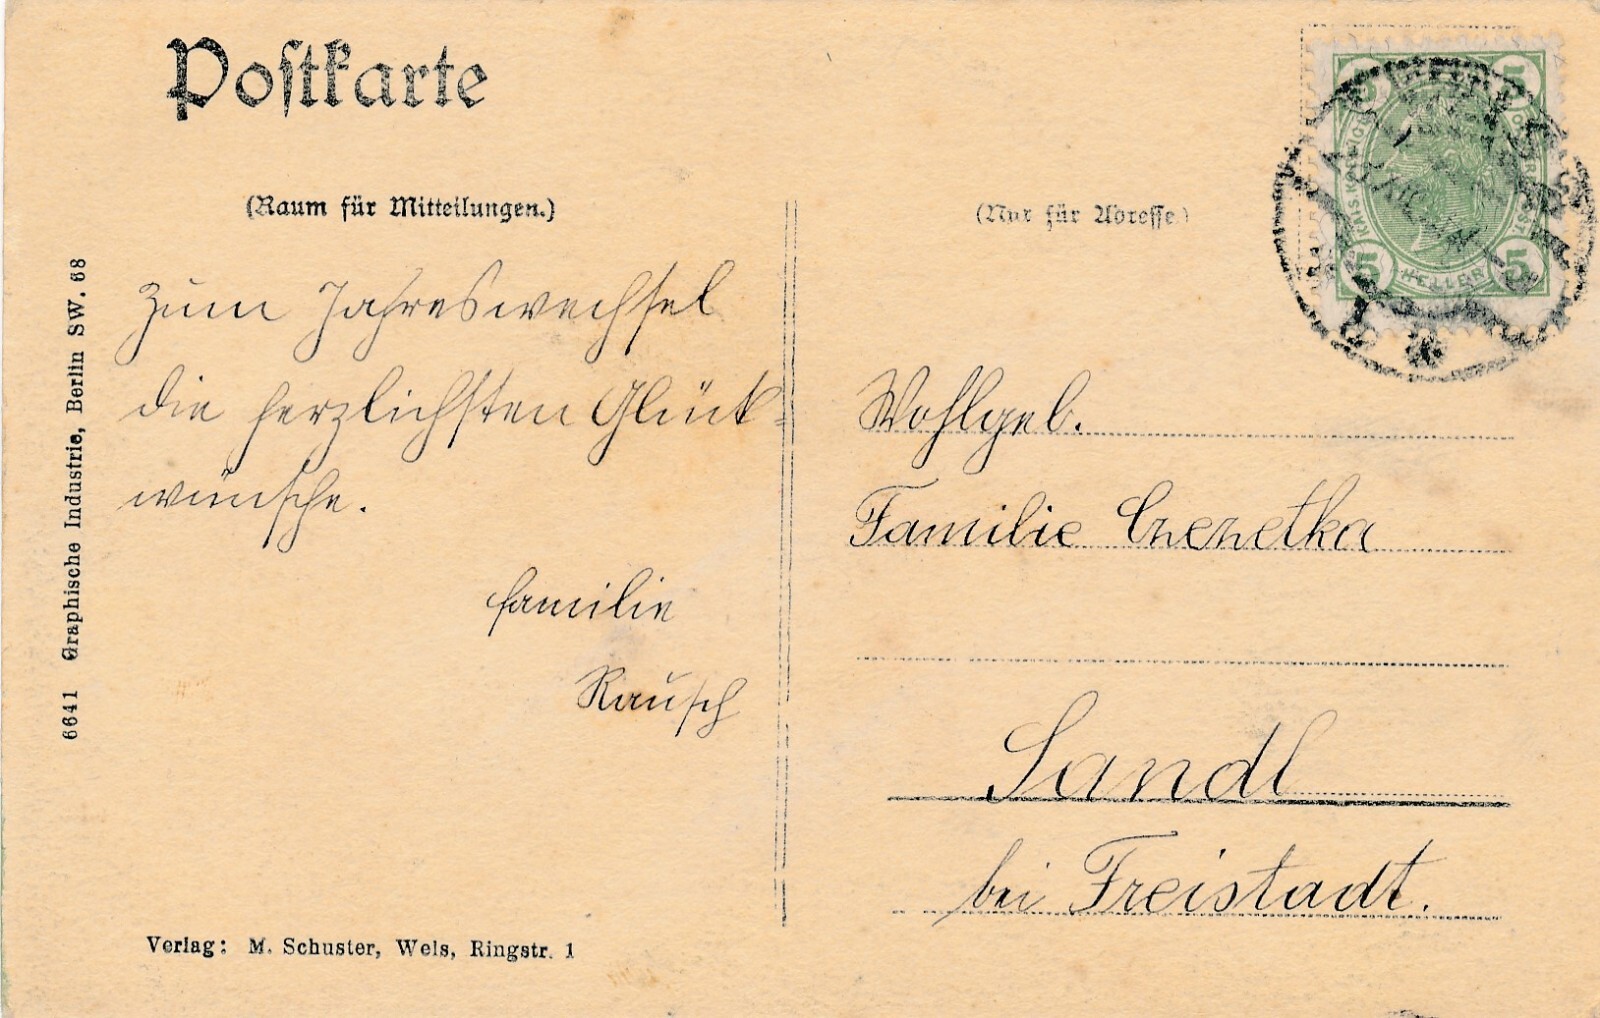 Postkarte
(Raum für Mitteilungen.)
(Nur für Adresse.)
5 5
KAIS. KÖNIGL. ÖSTERR. POST.
5 HELLER 5
Zum Jahreswechsel
die herzlichsten Glück-
wünsche.
Familie
Rausch
Wohlgeb.
Familie Czezetka
Sandl
bei Freistadt.
6641 Graphische Industrie, Berlin SW. 68
Verlag: M. Schuster, Wels, Ringstr. 1